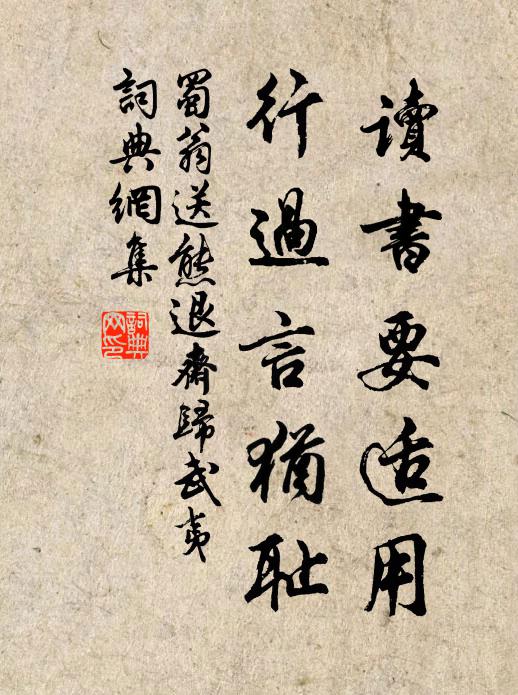 讀書要适用
行過言猶耻
蜀翁送熊退齋歸武夷
詞典網集
詞典網印